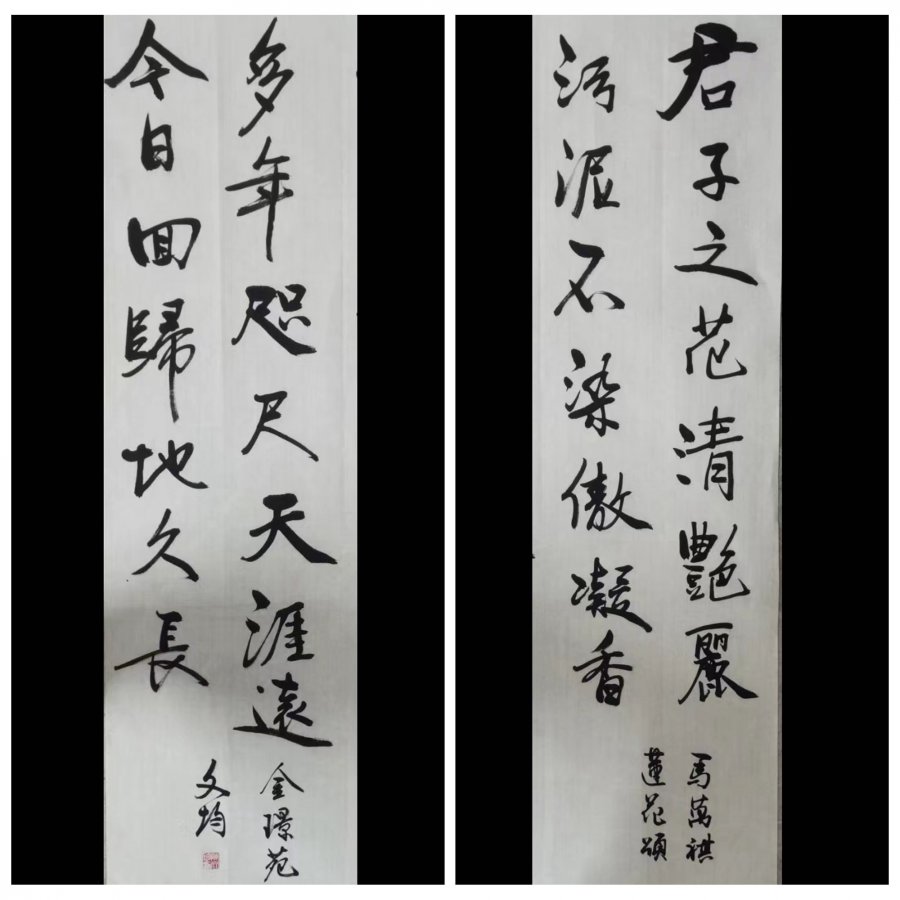 君子之花清艷麗
污泥不染傲凝香
馬萬祺
蓮花頌
多年咫尺天涯遠
今日回歸地久長
金璟苑
文均